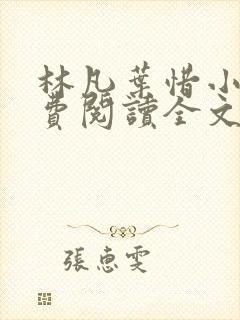 林凡葉惜小
費閱讀全文
張惠雯